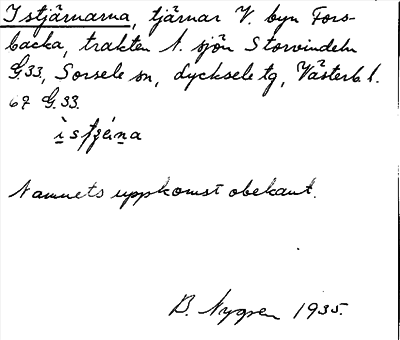 Istjärnarna, tjärnar V. byn Fors-
backa, trakten N. sjön Storvindeln
G.33, Sorsele sn, Lycksele tg, Västerb. l.
67 G.33.
Namnets uppkomst obekant.
B. Nygren 1935.